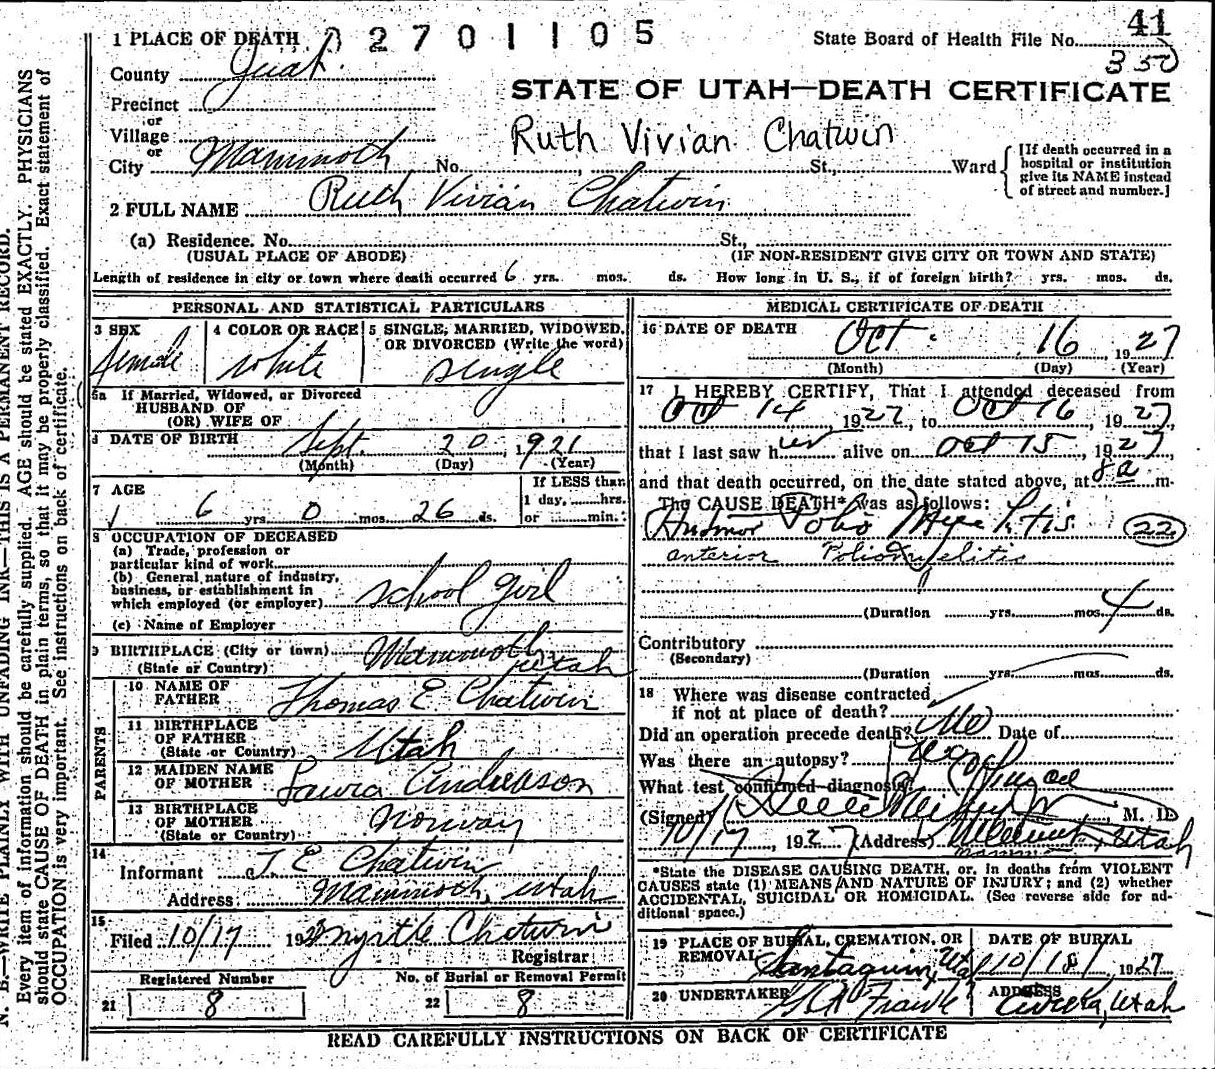 1 PLACE OF DEATH 2701105
State Board of Health File No. 41
350
County Juab.
STATE OF UTAH—DEATH CERTIFICATE
Precinct
or
Village
Ruth Vivian Chatwin
or
City Mammoth No. , St., Ward
[If death occurred in a hospital or institution give its NAME instead of street and number.]
2 FULL NAME Ruth Vivian Chatwin
(a) Residence. No. St.,
(USUAL PLACE OF ABODE) (IF NON-RESIDENT GIVE CITY OR TOWN AND STATE)
Length of residence in city or town where death occurred 6 yrs. mos. ds. How long in U. S., if of foreign birth? yrs. mos. ds.
PERSONAL AND STATISTICAL PARTICULARS
3 SEX female
4 COLOR OR RACE white
5 SINGLE, MARRIED, WIDOWED, OR DIVORCED (Write the word) single
5a If Married, Widowed, or Divorced
HUSBAND OF
(OR) WIFE OF
6 DATE OF BIRTH Sept. 20, 1921
(Month) (Day) (Year)
7 AGE 6 yrs. 0 mos. 26 ds.
If LESS than
1 day, hrs.
or min.
8 OCCUPATION OF DECEASED
(a) Trade, profession or
particular kind of work
(b) General nature of industry,
business, or establishment in
which employed (or employer) school girl
(c) Name of Employer
9 BIRTHPLACE (City or town) Mammoth
(State or Country) Utah
PARENTS
10 NAME OF FATHER Thomas E. Chatwin
11 BIRTHPLACE OF FATHER (State or Country) Utah
12 MAIDEN NAME OF MOTHER Laura Andreason
13 BIRTHPLACE OF MOTHER (State or Country) Norway
14
Informant T. E. Chatwin
Address: Mammoth, Utah
15
Filed 10/17 19 Myrtle Chatwin
Registrar
Registered Number No. of Burial or Removal Permit
21 8 22 8
MEDICAL CERTIFICATE OF DEATH
16 DATE OF DEATH Oct. 16, 1927
(Month) (Day) (Year)
17 I HEREBY CERTIFY, That I attended deceased from
Oct 14 1927, to Oct 16, 1927,
that I last saw her alive on Oct 15, 1927
and that death occurred, on the date stated above, at 8a m.
The CAUSE DEATH* was as follows:
22
anterior Poliomyelitis
(Duration yrs. mos. 4 ds.
Contributory
(Secondary)
(Duration yrs. mos. ds.
18 Where was disease contracted
if not at place of death?
Did an operation precede death? No Date of
Was there an autopsy?
What test confirmed diagnosis?
(Signed) M. D.
10/17, 1927 (Address) Utah
*State the DISEASE CAUSING DEATH, or, in deaths from VIOLENT
CAUSES state (1) MEANS AND NATURE OF INJURY; and (2) whether
ACCIDENTAL, SUICIDAL OR HOMICIDAL. (See reverse side for ad-
ditional space.)
19 PLACE OF BURIAL, CREMATION, OR REMOVAL Santaquin, Utah
DATE OF BURIAL 10/18/ 1927
20 UNDERTAKER Frank
ADDRESS Eureka, Utah
READ CAREFULLY INSTRUCTIONS ON BACK OF CERTIFICATE
N. B.—WRITE PLAINLY WITH UNFADING INK—THIS IS A PERMANENT RECORD.
Every item of information should be carefully supplied. AGE should be stated EXACTLY. PHYSICIANS
should state CAUSE OF DEATH in plain terms, so that it may be properly classified. Exact statement of
OCCUPATION is very important. See instructions on back of certificate.